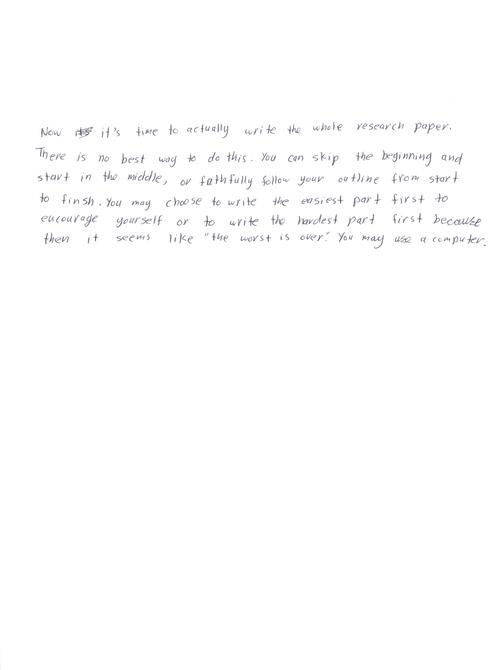 Now it's time to actually write the whole research paper.
There is no best way to do this. You can skip the beginning and
start in the middle, or fathfully follow your outline from start
to finsh. You may choose to write the easiest part first to
encourage yourself or to write the hardest part first because
then it seems like "the worst is over." You may use a computer.